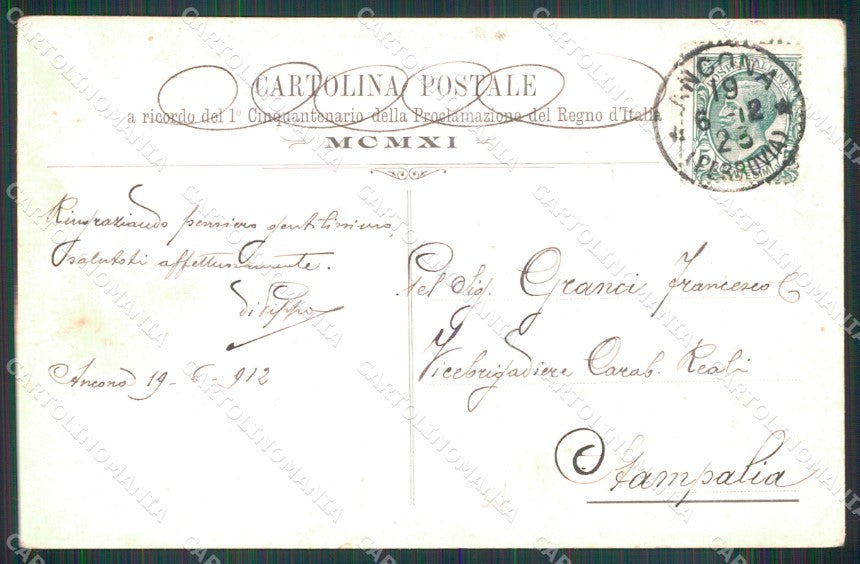 CARTOLINA POSTALE
a ricordo del 1º Cinquantenario della Proclamazione del Regno d'Italia
MCMXI
ANCONA
19
6 - 12
23
(FERROVIA)
Ringraziando pensiero gentilissimo,
salutoti affettuosamente.
Ancona 19 - 6 912
Sig. Granci Francesco
Vicebrigadiere Carab. Reali
Stampalia
CARTOLINOMANIA